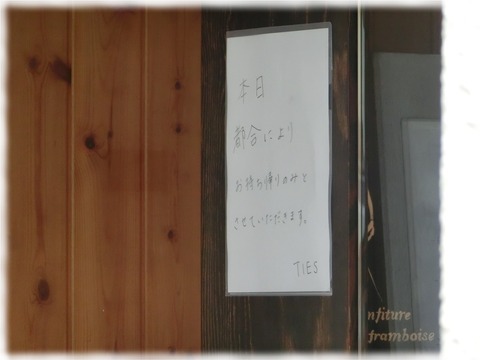 本日
都合により
お持ち帰りのみと
させていただきます。
TIES
nfiture
framboise